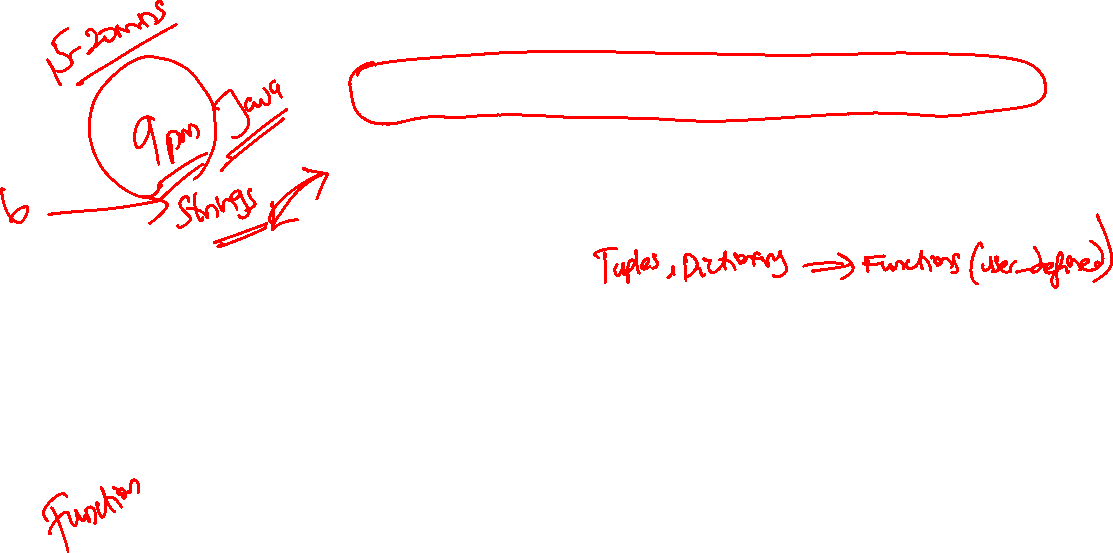 15-20mins
9pm
Java
6
Strings
Tuples, Dictionary => Functions (user_defined)
Function